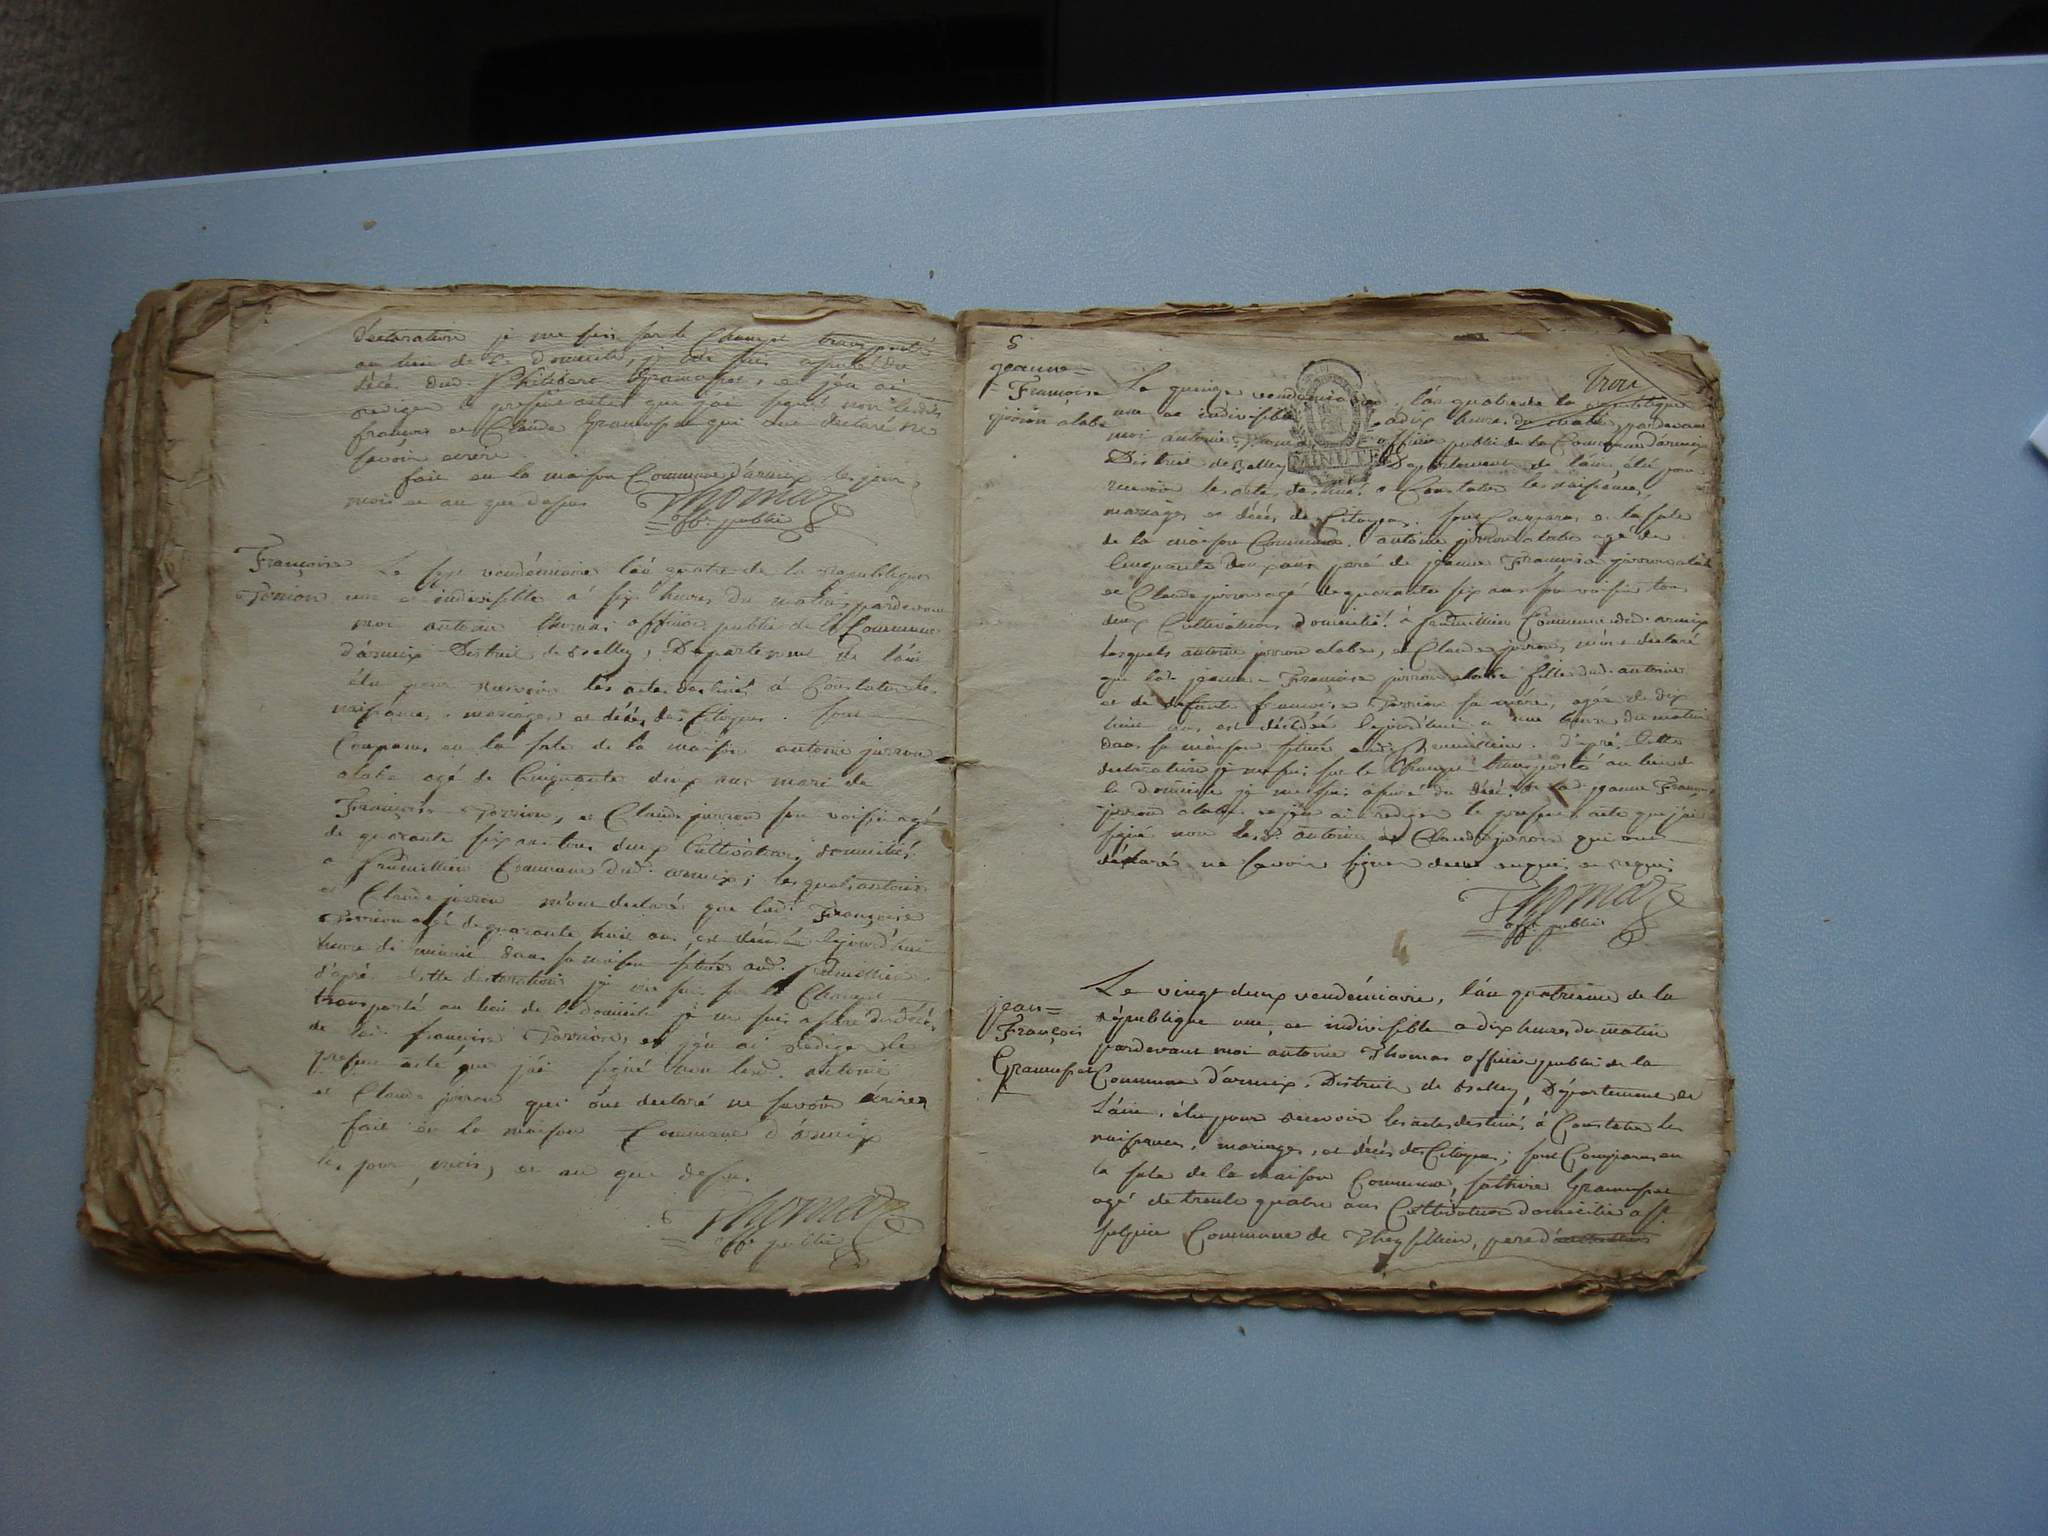 declaration je me suis sur le Champ transporté
au lieu de Ce domicile, je me suis assuré du
décés dud. Philibert Gramusset, et j'en ai
rediger le present acte que j'ai signé non lesdits
françois et Claude Gramusset qui ont declaré ne
savoir ecrire.
fait en la maison Commune d'armix les jour,
mois et an que dessus
Thomas
off. public
Françoise
Le six vendémiaire l'an quatre de la republique
une et indivisible a six heures du matin pardevant
moi antoine thomas officier public de la Commune
d'armix District de Belley, Departement de l'ain
élu pour recevoir les actes destinés à Constater les
naissances, mariages et décés des Citoyens. sont
Comparus en la sale de la maison antoine jurron
alabe agé de Cinquante deux ans mari de
Françoise et Claude jurron son voisin agé
de quarante six ans tous deux Cultivateurs domiciliés
a premillieu Commune dud. armix; lesquels antoine
et Claude jurron m'ont declaré que lad. Françoise
agé de quarante huit ans, est décédée lejourd'hui
heure de minuit dans sa maison située aud. premillieu
d'apré Cette declaration je me suis sur le Champ
transporté au lieu de Ce domicile je me suis assuré du décés
de lad. françoise et j'en ai rediger le
present acte que j'ai signé non lesd. antoine
et Claude jurron qui ont declaré ne savoir écrire
fait en la maison Commune d'armix
les jour, mois, et an que dessus.
Thomas
off. public
5
trois
jeanne=
=Françoise
jurron alabe
Le quinze vendémiaire, l'an quatre de la republique
une et indivisible a dix heures du matin, pardevant
moi antoine Thomas officier public de la Commune d'armix
District de Belley Departement de l'ain, élu pour
MINUTE
recevoir les actes destinés a Constater les naissances,
mariages et décés des Citoyens. sont Comparus en la sale
de la maison Commune. antoine jurron alabe agé de
Cinquante deux ans peré de jeanne Françoise jurron alabe
et Claude jurron agé de quarante six ans son voisin tous
deux Cultivateurs domiciliés a premillieu Commune dud. armix
lesquels antoine jurron alabe, et Claude jurron, m'ont declaré
que lad. jeanne-Françoise jurron alabe fille dud. antoine
et de defunte françoise sa mère, agée de dix
huit ans est décédée lejourd'hui a une heure du matin
dans sa maison située aud. premillieu. d'apré Cette
declaration je me suis sur le Champ transporté au lieu de
Ce domicile je me suis assuré du décés de lad. jeanne Françoise
jurron alabe et j'en ai rediger le present acte que j'ai
signé non lesd. antoine et Claude jurron qui ont
déclaré ne savoir signer de ce enquis et requis
Thomas
off. public
jean=
François
Gramusset
Le vingt deux vendémiaire, l'an quatrieme de la
république une, et indivisible a dix heures du matin
pardevant moi antoine Thomas officier public de la
Commune d'armix, District de Belley, Département de
L'ain, élu pour recevoir les actes destinés à Constater les
naissances, mariages, et décés des Citoyens; sont Comparus en
la sale de la maison Commune, Gramusset
agé de trente quatre ans Cultivateur domicilié a st
sulpice Commune de Theysillieu, pere d'